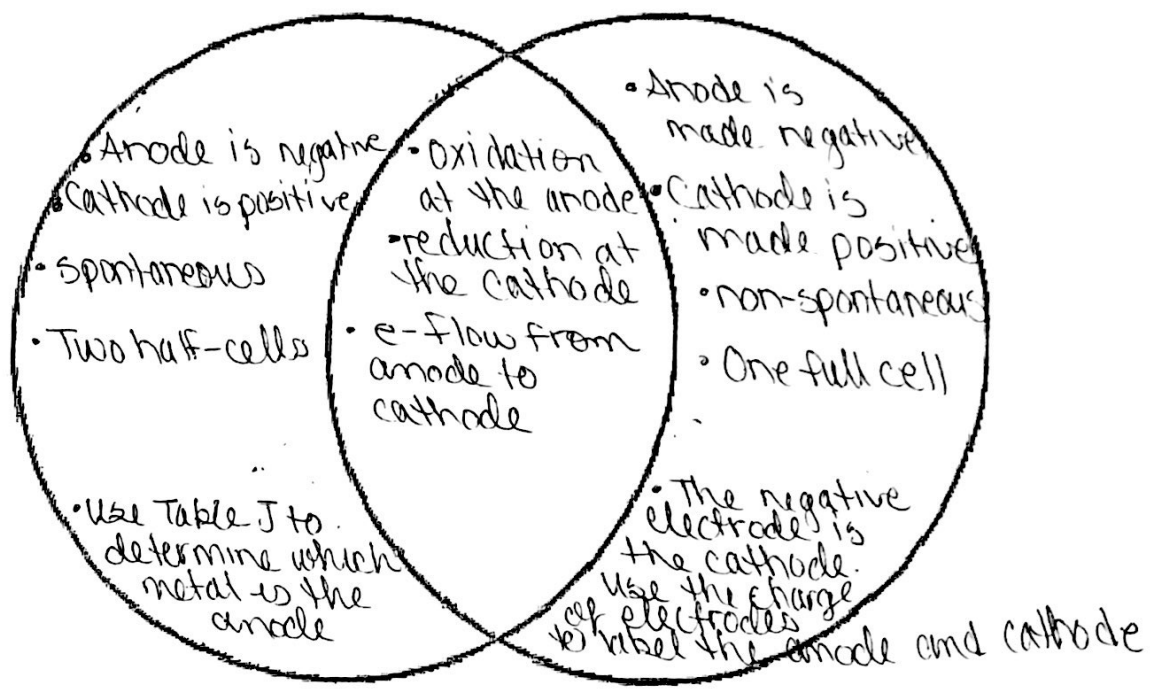 • Anode is negative
• Cathode is positive
• spontaneous
• Two half-cells
• Use Table J to
determine which
metal is the
anode
• oxidation
at the anode
• reduction at
the cathode
• e- flow from
anode to
cathode
• Anode is
made negative
• Cathode is
made positive
• non-spontaneous
• One full cell
• The negative
electrode is
the cathode.
Use the charge
of electrodes
to label the anode and cathode